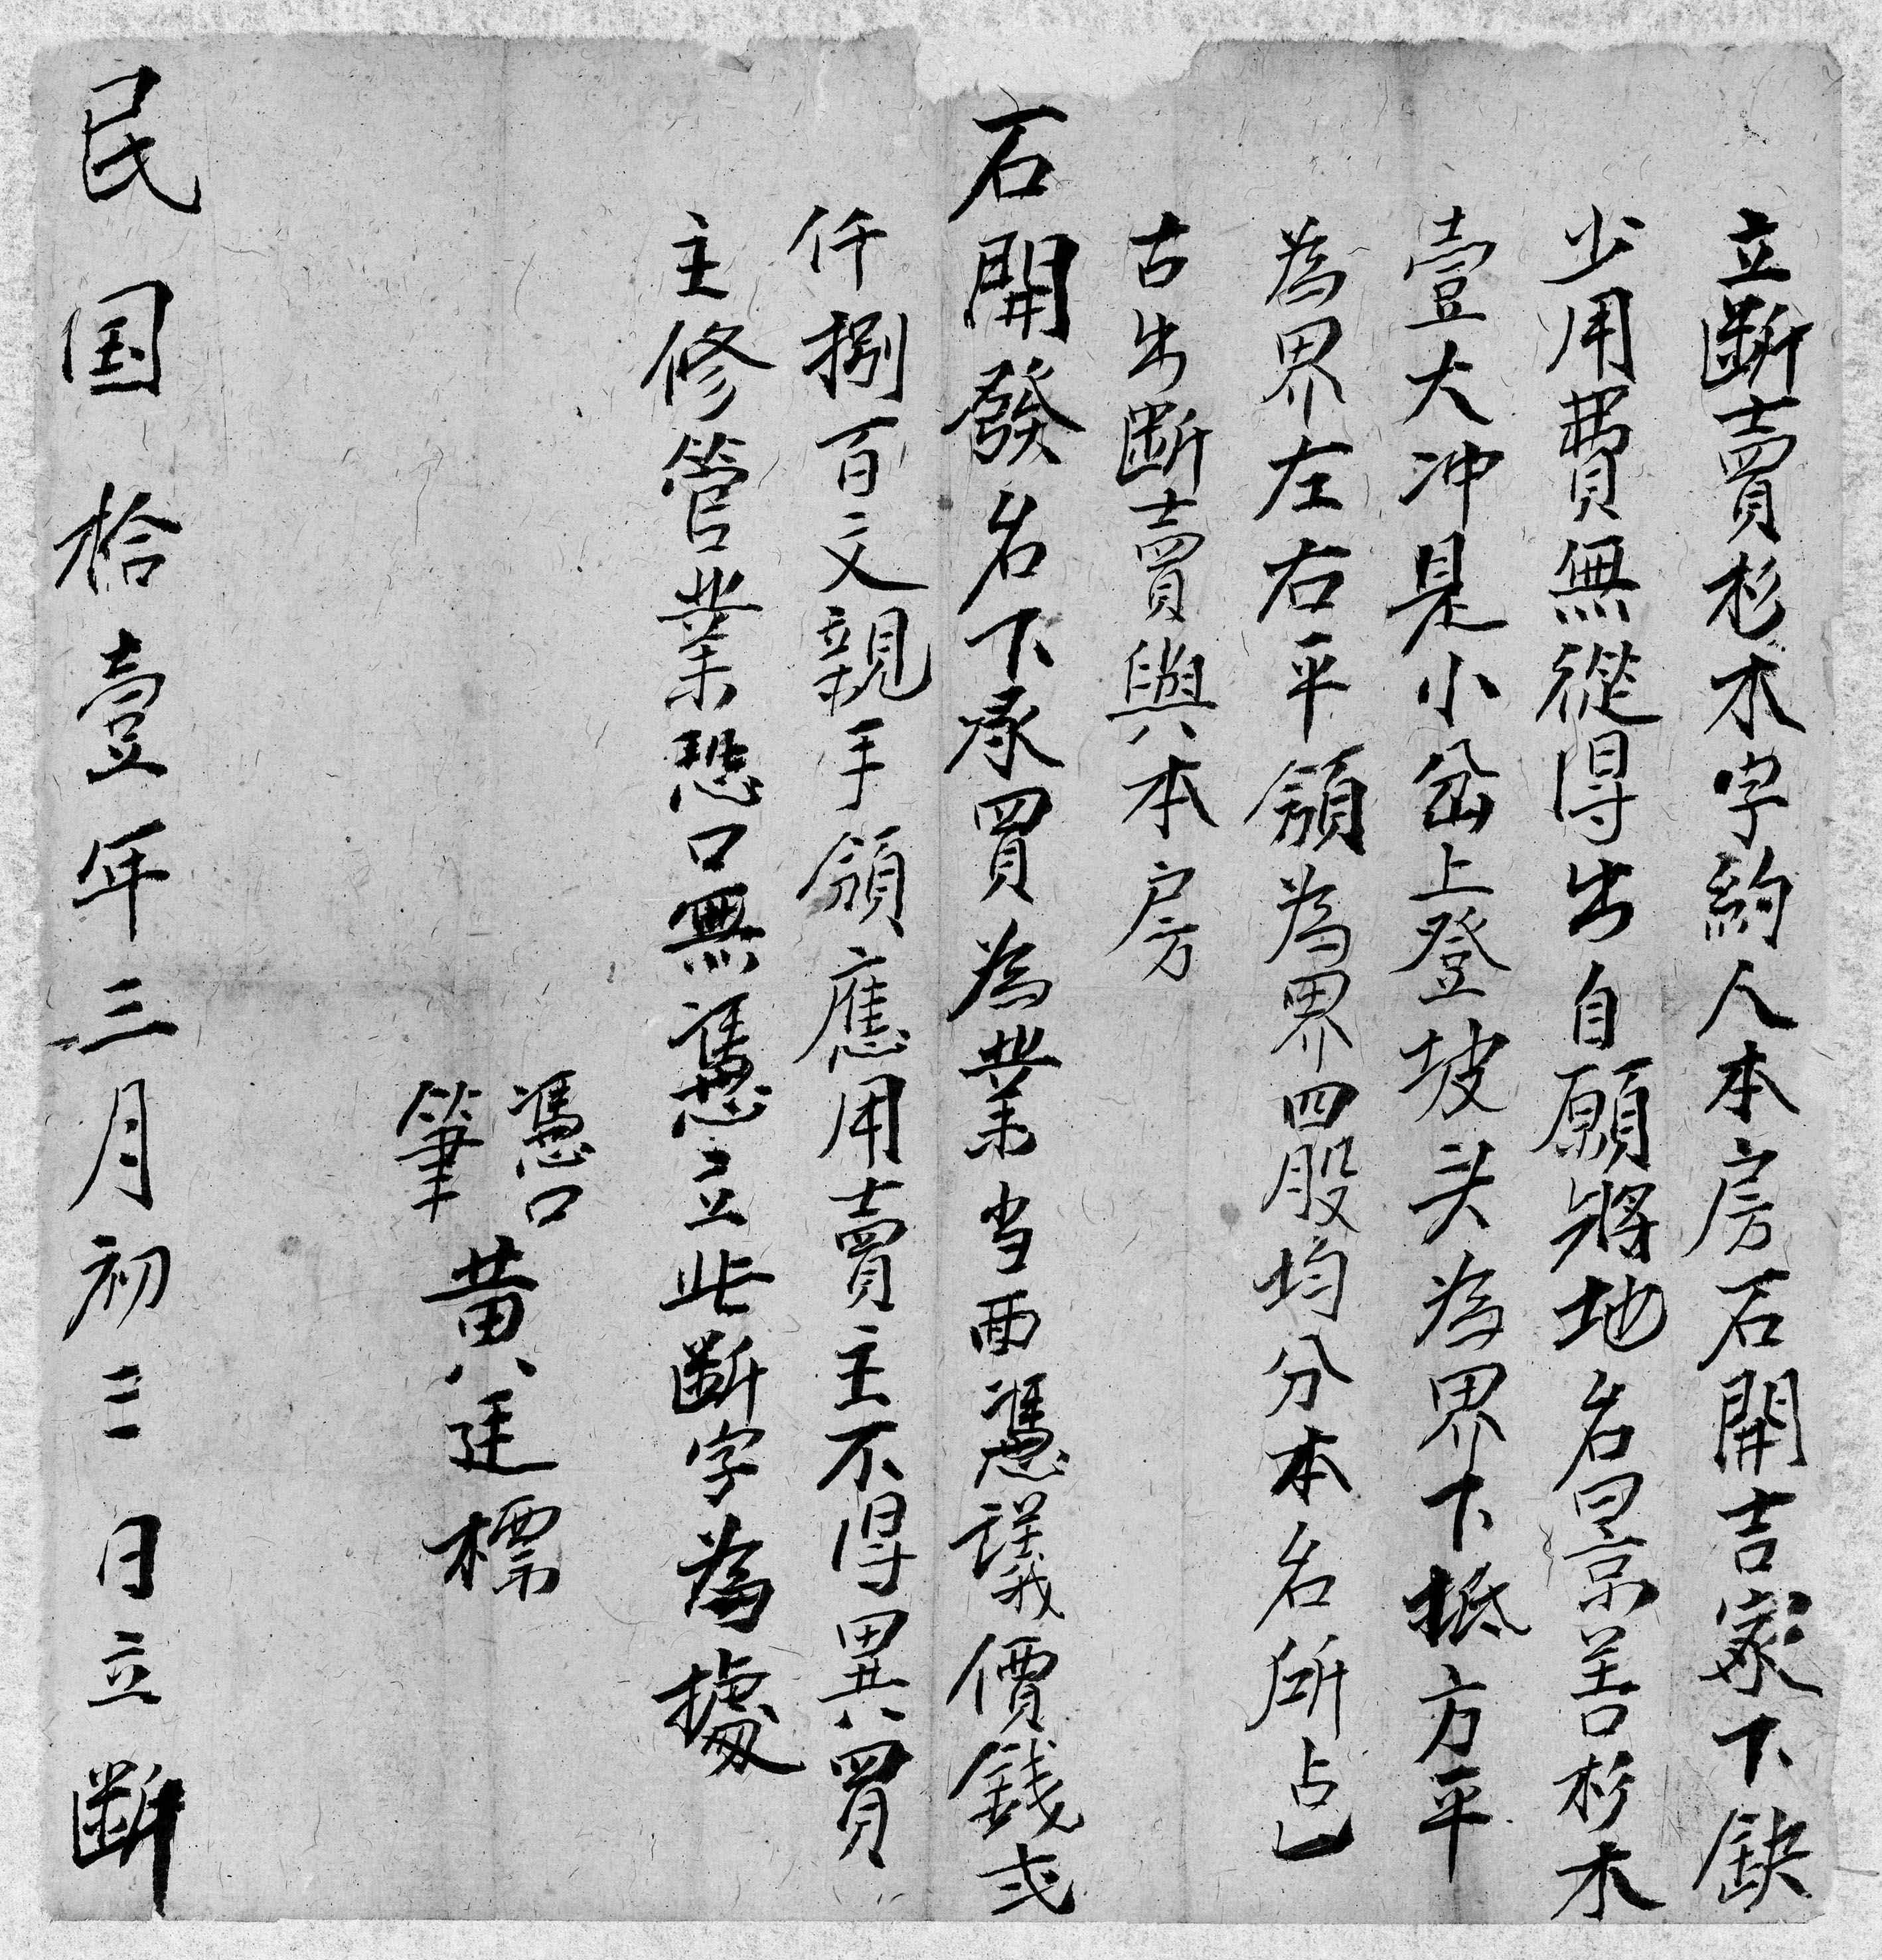 立断賣杉木字約人本房石開吉家下缺
少用費無從得出自願將地名景善杉木
壹大冲是小岔上登坡头為界下抵方平
為界左右平領為界四股均分本名所占一
古出断賣與本房
石開發名下承買為業当面憑議價錢弍
仟捌百文親手領應用賣主不得異買
主修管業恐口無憑立此断字為據
憑口
筆 黄廷標
民国拾壹年三月初三日立断